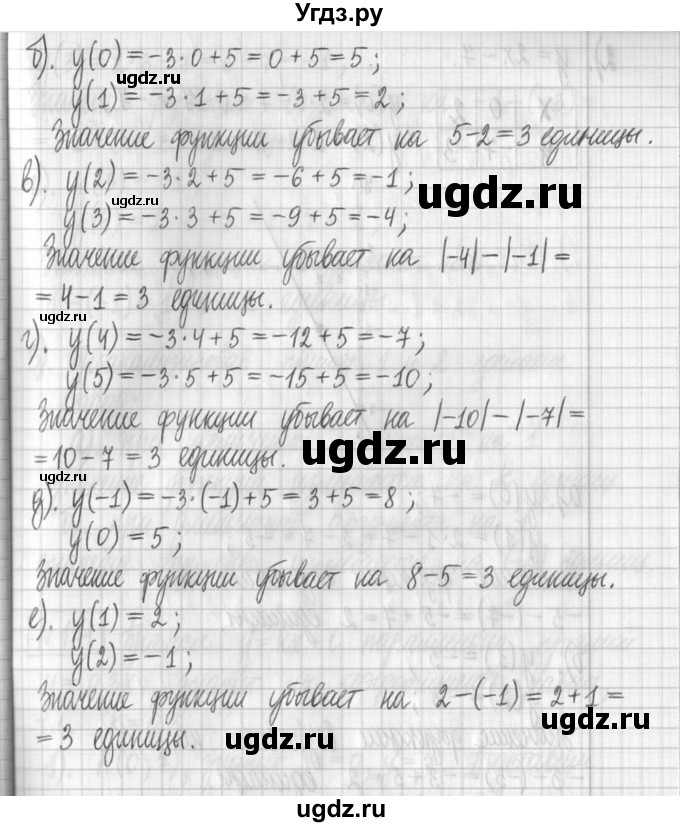 Угдз.ру
б). y(0) = -3·0+5 = 0+5 = 5;
ugdz.ru
y(1) = -3·1+5 = -3+5 = 2;
Значение функции убывает на 5-2=3 единицы.
в). y(2) = -3·2+5 = -6+5 = -1;
ugdz.ru
ugdz.ru
y(3) = -3·3+5 = -9+5 = -4;
Значение функции убывает на |-4|-|-1| =
= 4-1 = 3 единицы.
ugdz.ru
г). y(4) = -3·4+5 = -12+5 = -7;
y(5) = -3·5+5 = -15+5 = -10;
Значение функции убывает на |-10|-|-7| =
ugdz.ru
= 10-7 = 3 единицы.
ugdz.ru
д). y(-1) = -3·(-1)+5 = 3+5 = 8;
y(0) = 5;
Значение функции убывает на 8-5=3 единицы.
е). y(1) = 2;
y(2) = -1;
Значение функции убывает на 2-(-1) = 2+1 =
ugdz.ru
= 3 единицы.
ugdz.ru
ugdz.ru